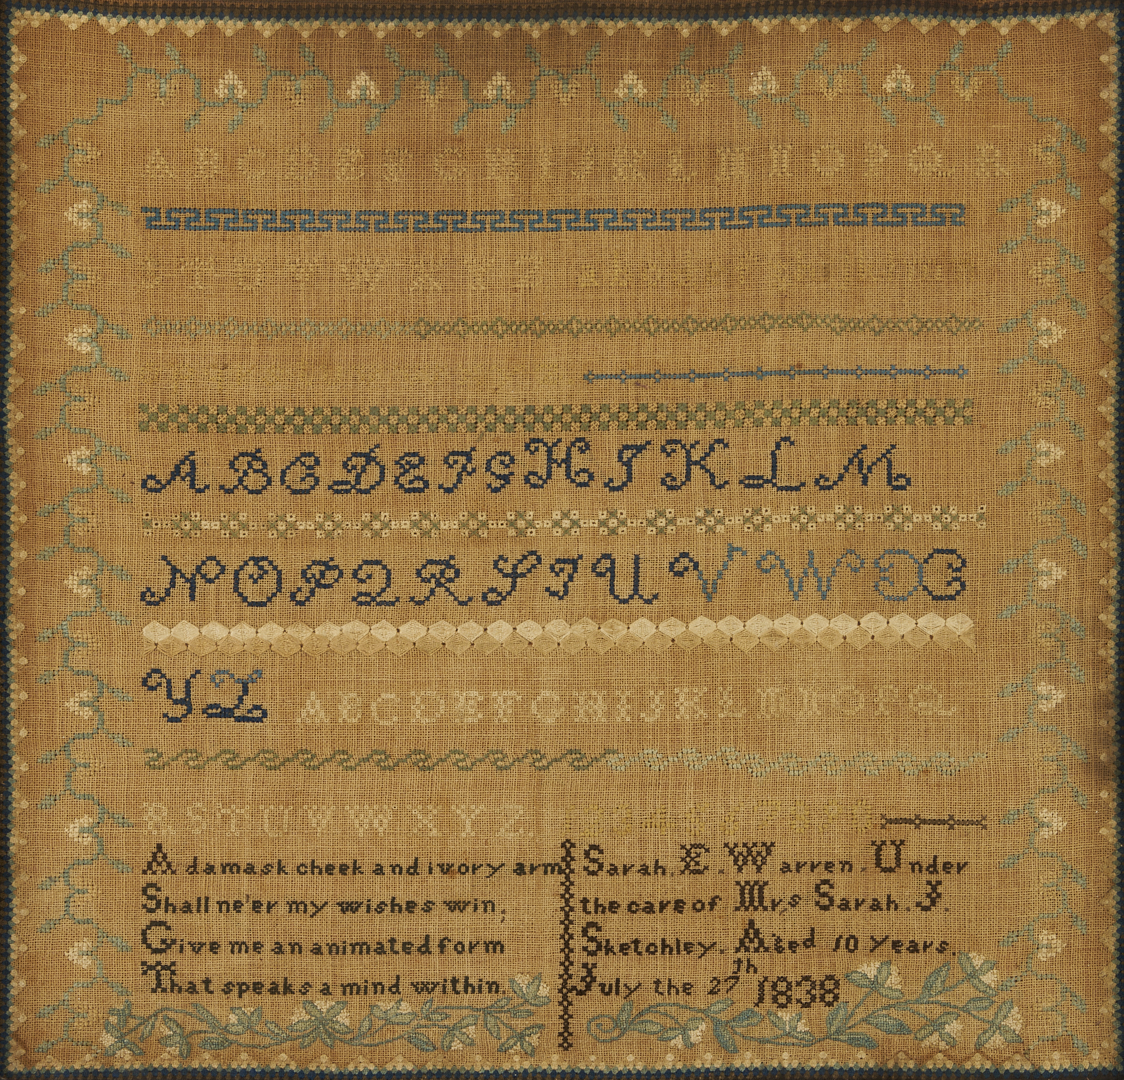 A B C D E F G H I J K L M N O P Q R
S T U V W X Y Z
A B C D E F G H I K L M
N O P Q R S T U V W X
Y Z A B C D E F G H I J K L M N O P Q
R S T U V W X Y Z
A damask cheek and ivory arm
Shall ne'er my wishes win,
Give me an animated form
That speaks a mind within.
Sarah . E . Warren . Under
the care of Mrs Sarah . J .
Sketchley . Aged 10 Years .
July the 27th 1838